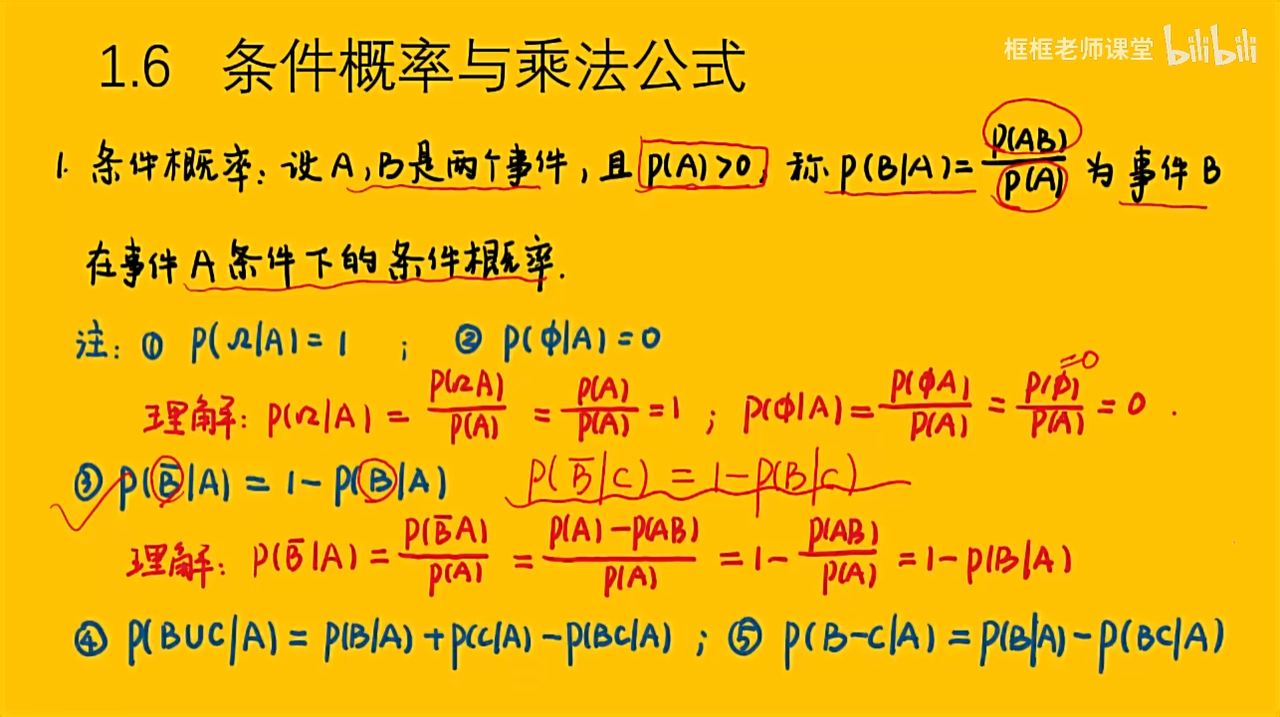 1.6 条件概率与乘法公式
框框老师课堂 bilibili
1. 条件概率：设A,B是两个事件，且P(A)>0，称P(B|A)=P(AB)/P(A)为事件B
在事件A条件下的条件概率.
注：① P(Ω|A)=1 ； ② P(ϕ|A)=0
理解：P(Ω|A)=P(ΩA)/P(A)=P(A)/P(A)=1 ； P(ϕ|A)=P(ϕA)/P(A)=P(ϕ)/P(A)=0 . =0
③ P(B̅|A)=1-P(B|A) P(B̅|C)=1-P(B|C)
理解：P(B̅|A)=P(B̅A)/P(A)=P(A)-P(AB)/P(A)=1-P(AB)/P(A)=1-P(B|A)
④ P(B∪C|A)=P(B|A)+P(C|A)-P(BC|A) ； ⑤ P(B-C|A)=P(B|A)-P(BC|A)